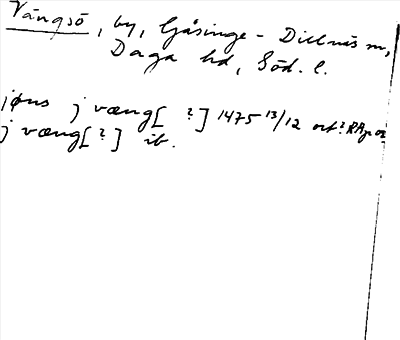 Vängsö, by, Gåsinge-Dillnäs sn,
Daga hd, Söd. l.
jøns j væng[ ?] 1475 13/12 or? RAp
j væng[?] ib.